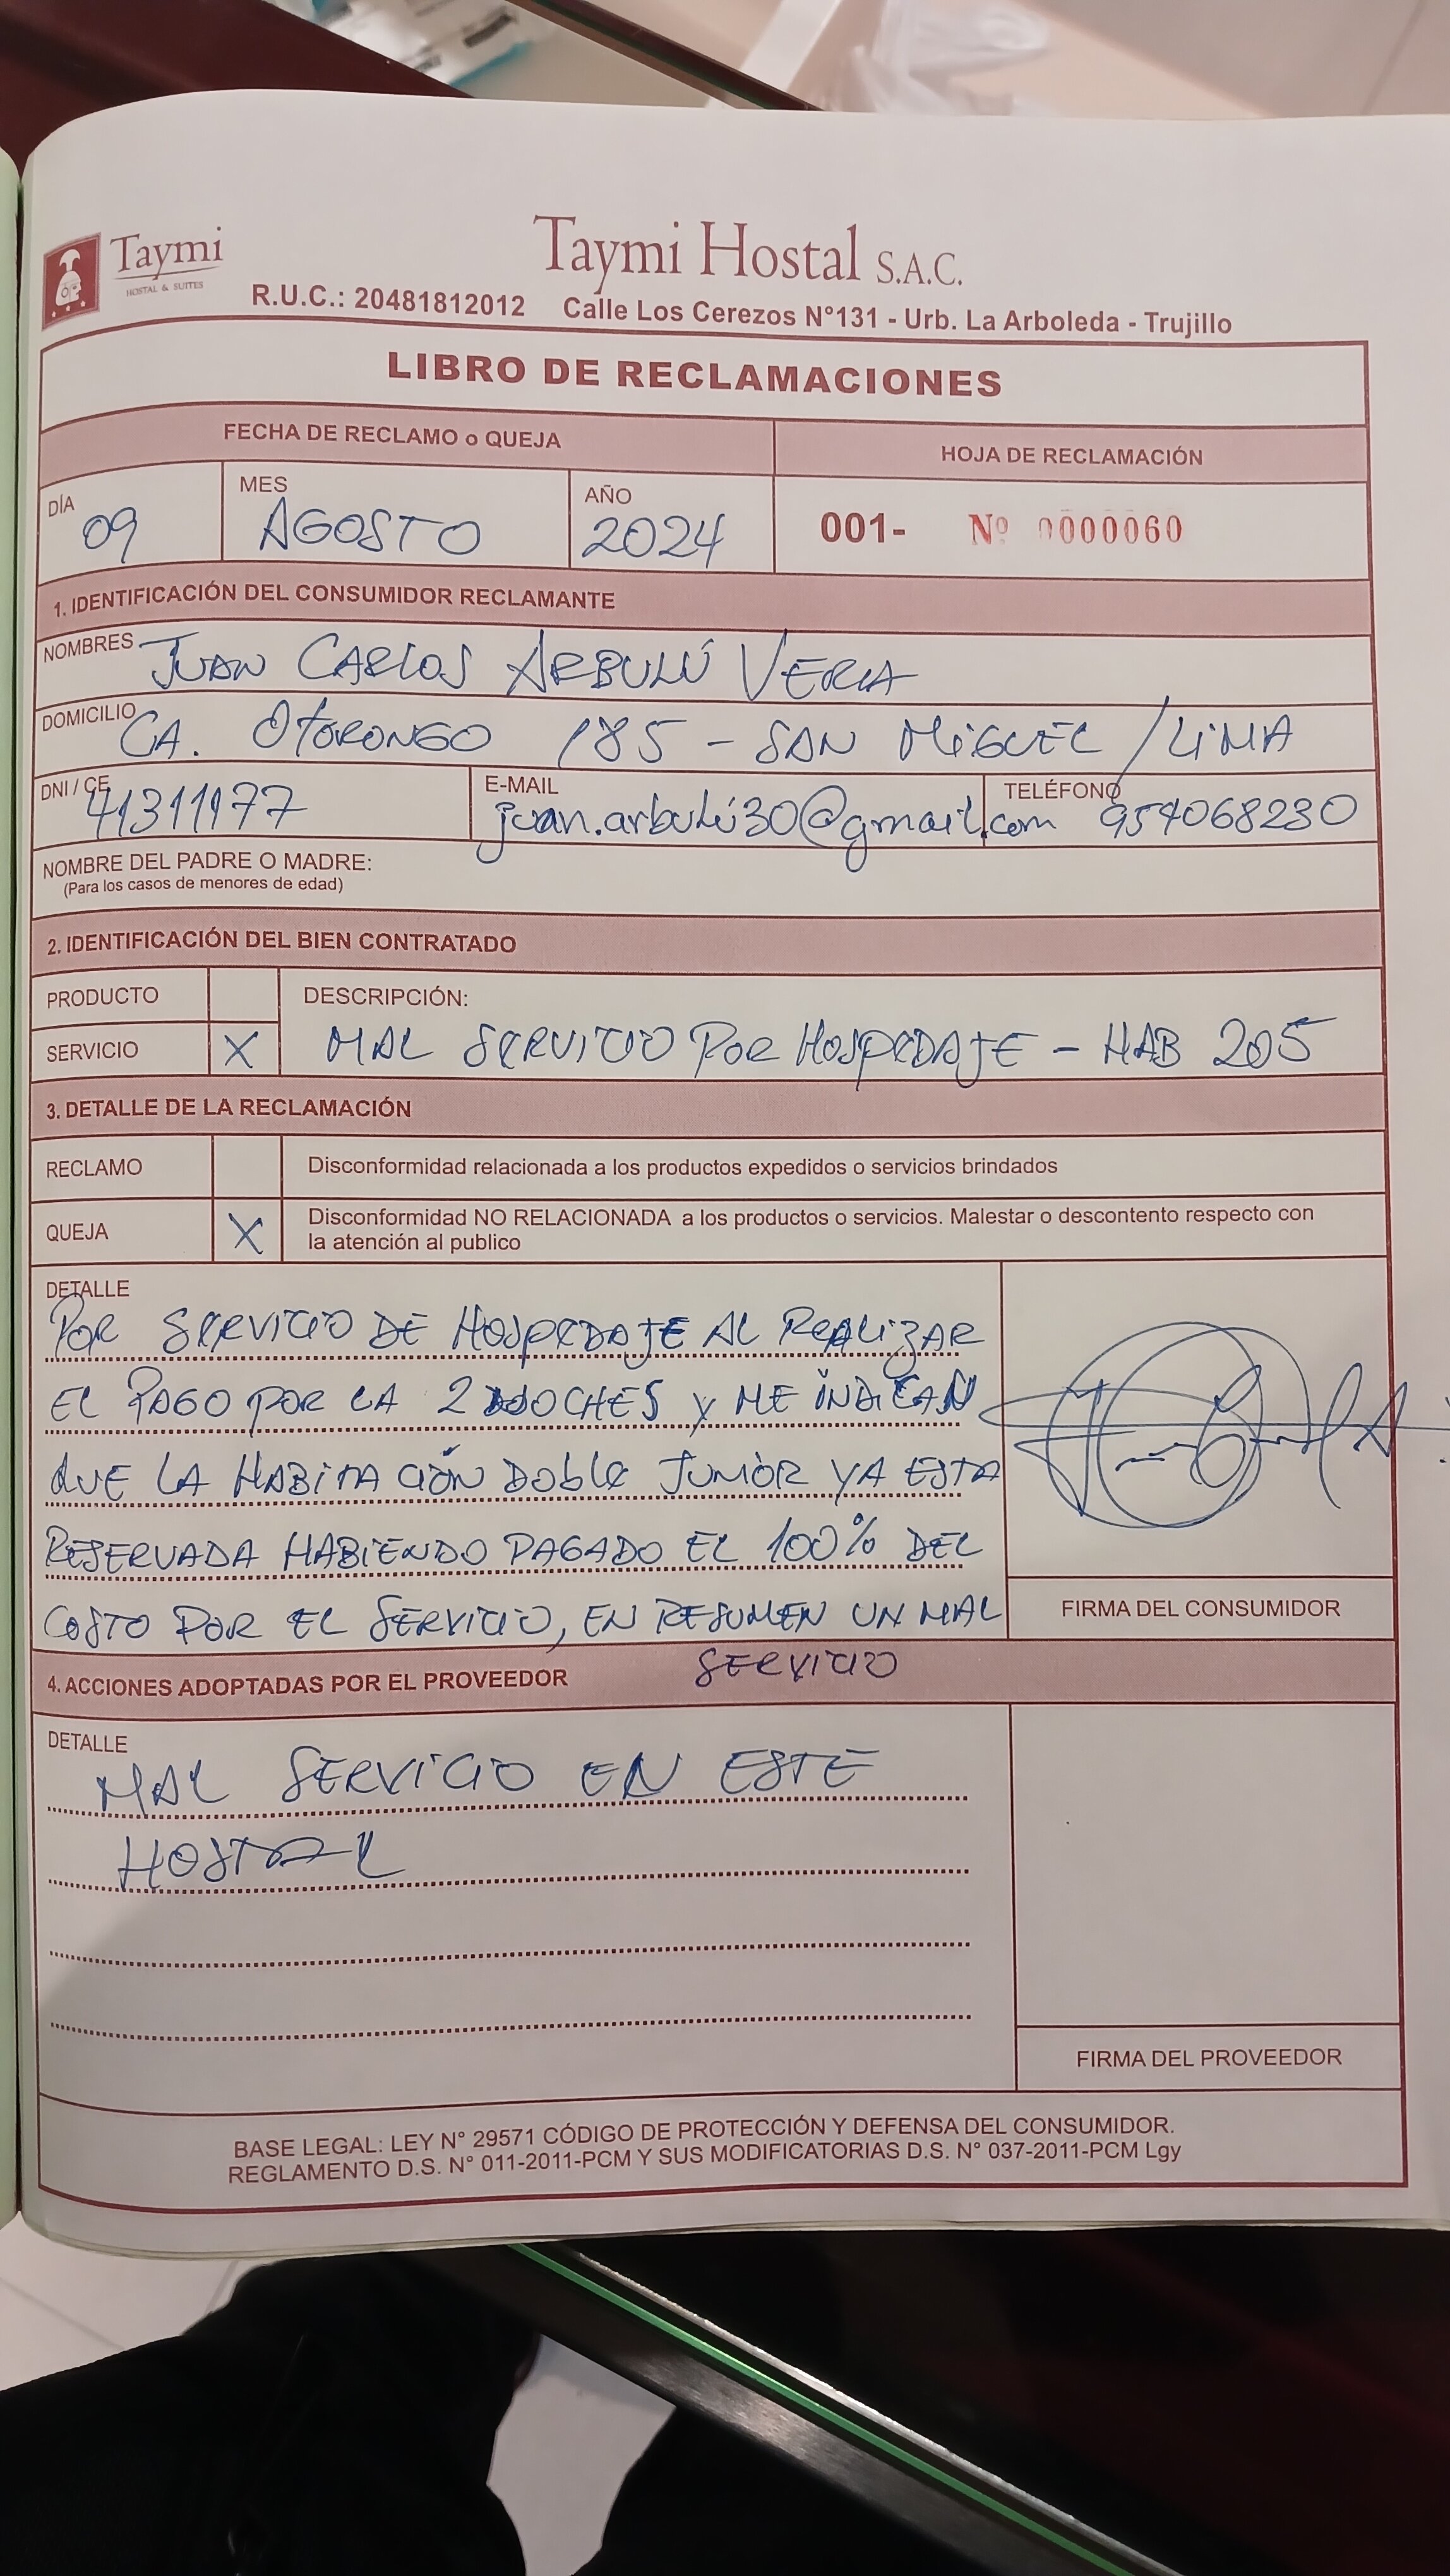 Taymi
HOSTAL & SUITES
Taymi Hostal S.A.C.
R.U.C.: 20481812012 Calle Los Cerezos N°131 - Urb. La Arboleda - Trujillo
LIBRO DE RECLAMACIONES
FECHA DE RECLAMO o QUEJA
HOJA DE RECLAMACIÓN
DÍA 09 MES AGOSTO AÑO 2024
001- Nº 0000060
1. IDENTIFICACIÓN DEL CONSUMIDOR RECLAMANTE
NOMBRES JUAN CARLOS ARBULÚ VERA
DOMICILIO CA. OTORONGO 185 - SAN MIGUEL / LIMA
DNI / CE 41311177 E-MAIL juan.arbulú30@gmail.com TELÉFONO 954068230
NOMBRE DEL PADRE O MADRE:
(Para los casos de menores de edad)
2. IDENTIFICACIÓN DEL BIEN CONTRATADO
PRODUCTO
SERVICIO X
DESCRIPCIÓN:
MAL SERVICIO POR HOSPEDAJE - HAB 205
3. DETALLE DE LA RECLAMACIÓN
RECLAMO Disconformidad relacionada a los productos expedidos o servicios brindados
QUEJA X Disconformidad NO RELACIONADA a los productos o servicios. Malestar o descontento respecto con
la atención al publico
DETALLE
POR SERVICIO DE HOSPEDAJE AL REALIZAR
EL PAGO POR LA 2 NOCHES Y ME INDICAN
QUE LA HABITACIÓN DOBLE JUNIOR YA ESTA
RESERVADA HABIENDO PAGADO EL 100% DEL
COSTO POR EL SERVICIO, EN RESUMEN UN MAL
SERVICIO
FIRMA DEL CONSUMIDOR
4. ACCIONES ADOPTADAS POR EL PROVEEDOR
DETALLE
MAL SERVICIO EN ESTE
HOSTAL
FIRMA DEL PROVEEDOR
BASE LEGAL: LEY N° 29571 CÓDIGO DE PROTECCIÓN Y DEFENSA DEL CONSUMIDOR.
REGLAMENTO D.S. N° 011-2011-PCM Y SUS MODIFICATORIAS D.S. N° 037-2011-PCM Lgy